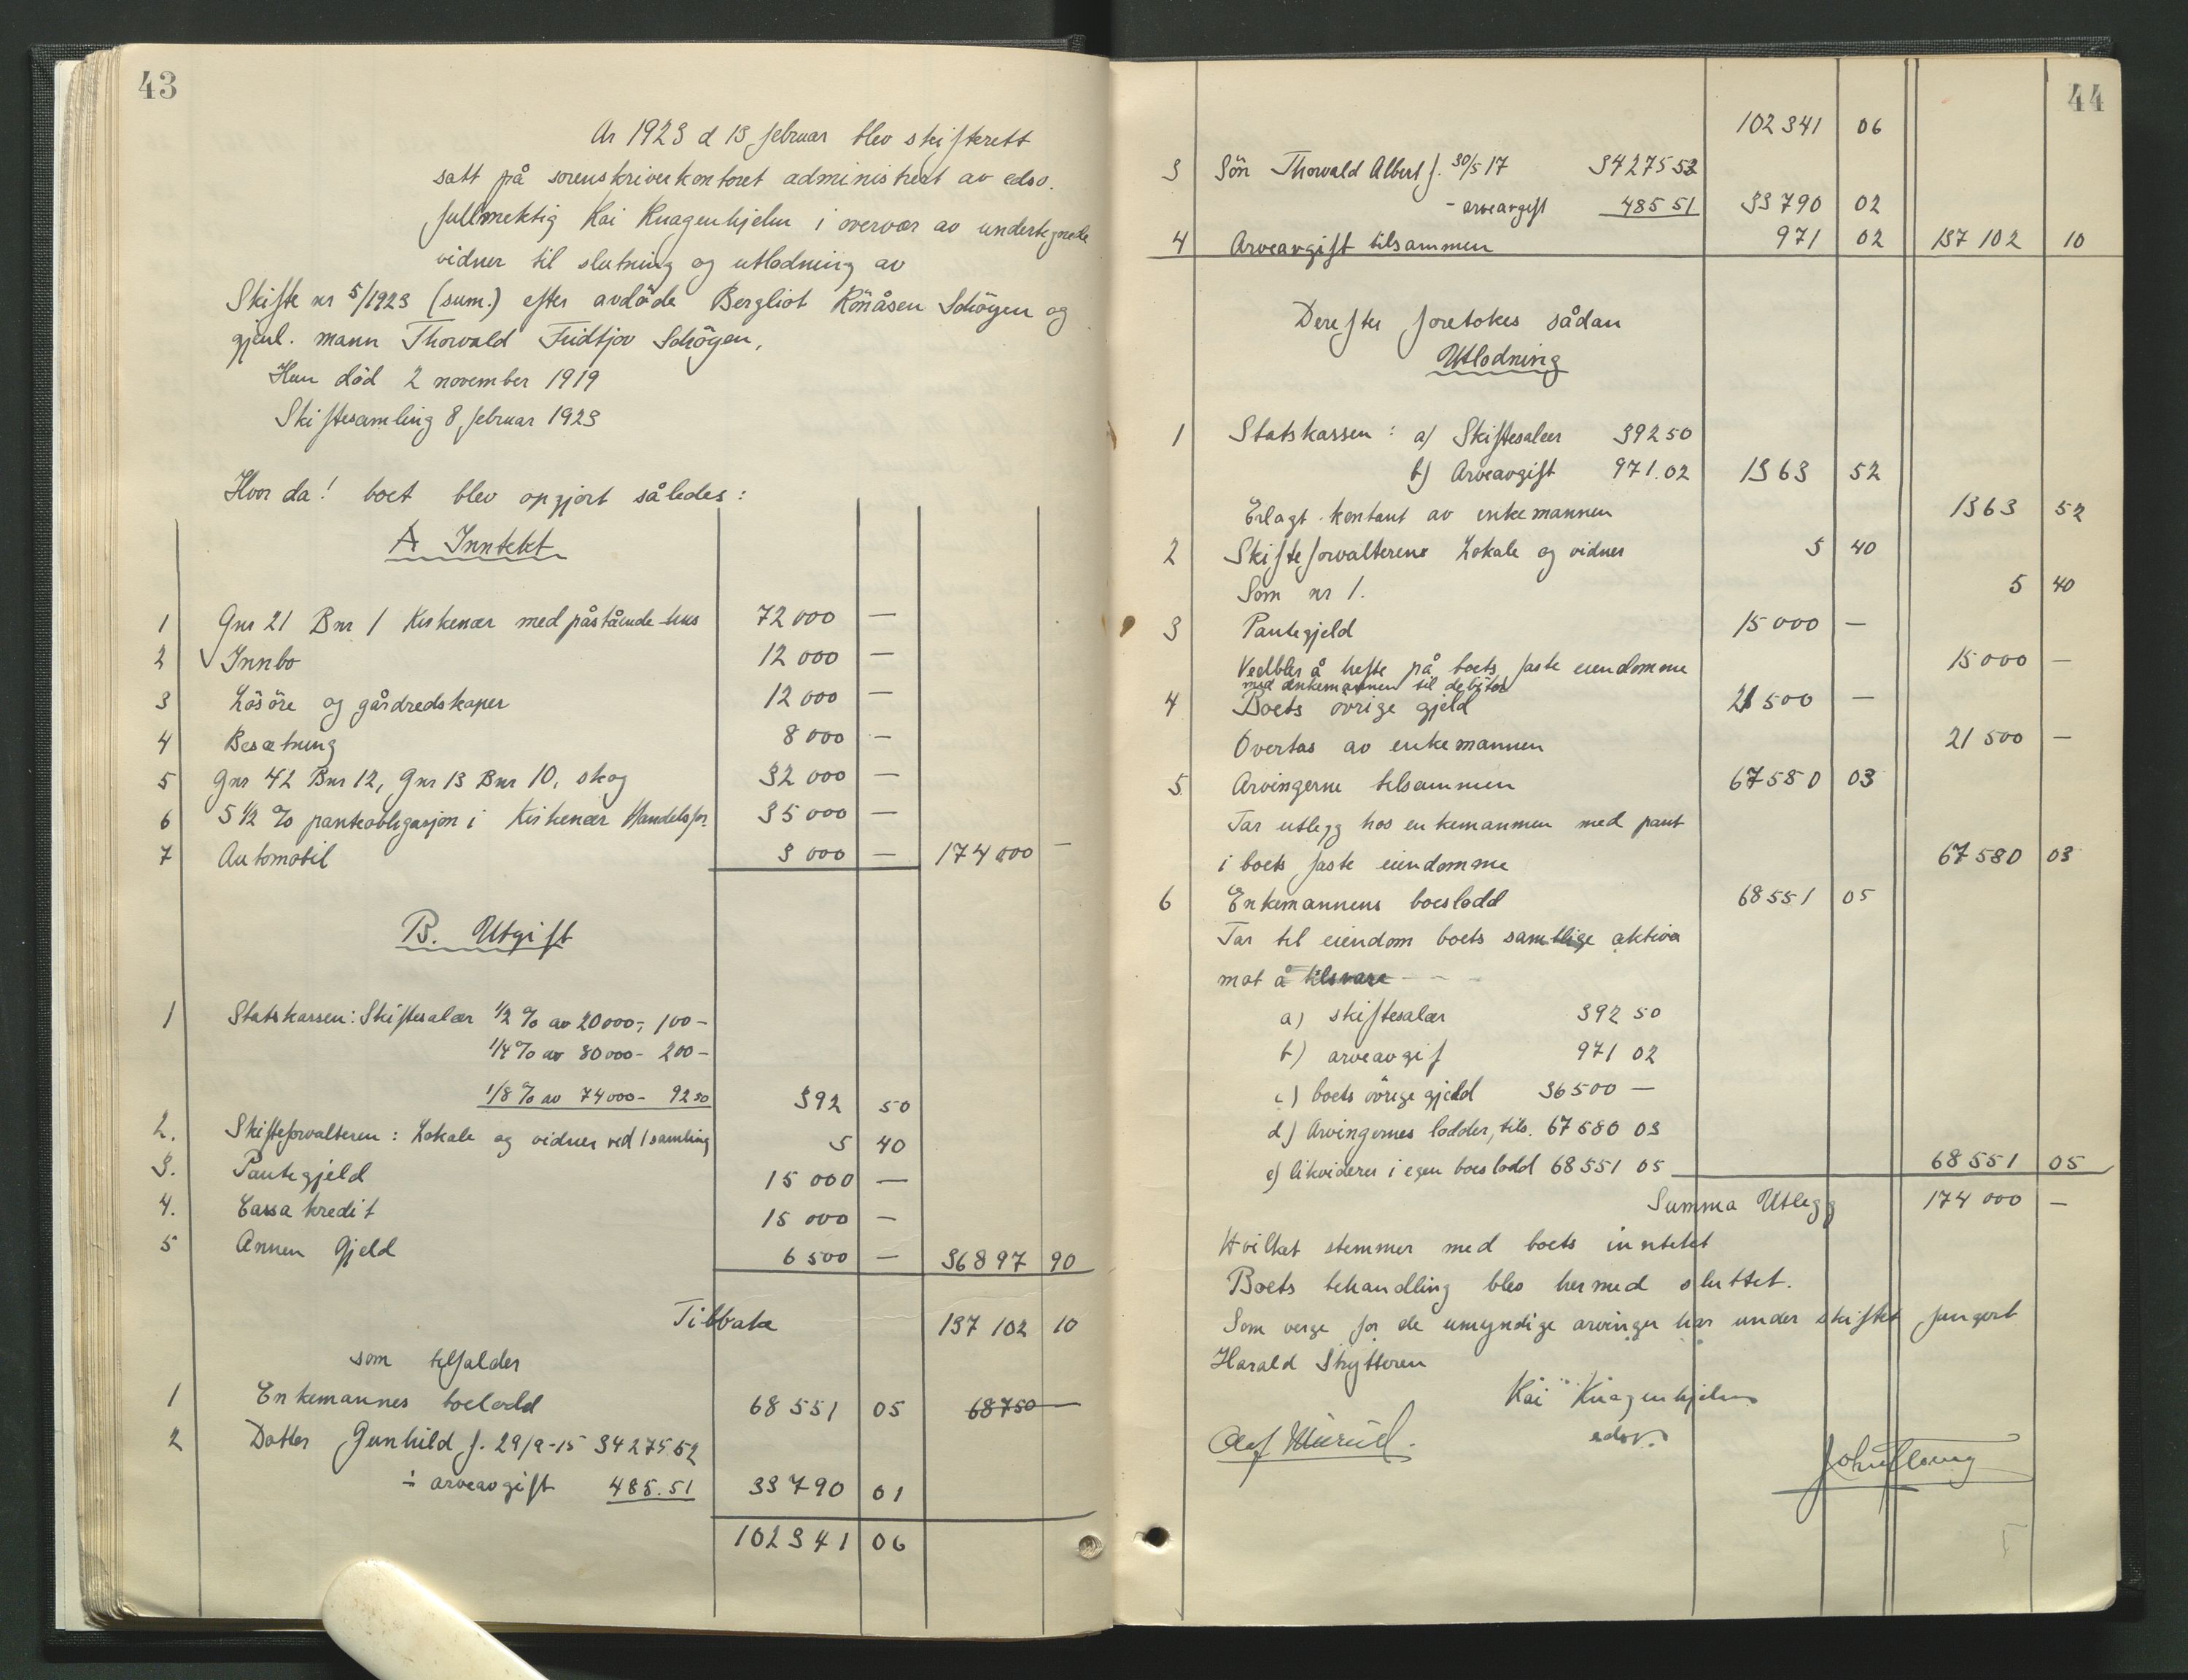 43
Ar 1923 d 13 februar blev skifterett
satt på sorenskriverkontoret administrert av edsv.
fullmektig Kai Knagenhjelm i overvær av undertegnede
vidner til slutning og utlodning av
Skifte nr 5/1923 (sum.) efter avdöde Bergliot Rönåsen Schöyen og
gjenl. mann Thorvald Fridtjov Schöyen,
Hun död 2 november 1919
Skiftesamling 8 februar 1923
Hvor da! boet blev opgjort således:
A Inntekt
1 Gnr 21 Bnr 1 Kirkenær med påstående hus 72 000 —
2 Innbo 12 000 —
3 Lösöre og gårdredskaper 12 000 —
4 Besætning 8 000 —
5 Gnr 42 Bnr 12, Gnr 13 Bnr 10, skog 32 000 —
6 5 1/2 % panteobligasjon i Kirkenær Handelsfor. 35 000 —
7 Automobil 3 000 — 174 000 —
B. Utgift
1 Statskassen: Skiftesalær 1/2 % av 20000,- 100 -
1/4 % av 80000 - 200 -
1/8 % av 74000 - 92 50 392 50
2. Skifteforvalteren: Lokale og vidner ved 1 samling 5 40
3. Pantegjeld 15 000 —
4. Cassakredit 15 000 —
5 Annen Gjeld 6 500 — 36897 90
Tilbake 137 102 10
som tilfalder
1 Enkemannes boslodd 68 551 05 68750 —
2 Datter Gunhild f. 29/9-15 34275.52
÷ arveavgift 485.51 33 790 01
102 341 06
44
102 341 06
3 Sön Thorvald Albert f. 30/5 17 34275 53
- arveavgift 485 51 33 790 02
4 Arveavgift tilsammen 971 02 137 102 10
Derefter foretokes sådan
Utlodning
1 Statskassen: a) Skiftesalær 392 50
b) Arveavgift 971.02 1363 52
Erlagt kontant av enkemannen 1363 52
2 Skifteforvalteren Lokale og vidner 5 40
Som nr 1. 5 40
3 Pantegjeld 15 000 —
Vedblir å hefte på boets faste eiendomme 15 000 —
med enkemannen til debitor
4 Boets övrige gjeld 21 500 —
Overtas av enkemannen 21 500 —
5 Arvingerne tilsammen 67 580 03
Tar utlegg hos enkemannen med pant
i boets faste eiendomme 67 580 03
6 Enkemannens boeslodd 68 551 05
Tar til eiendom boets samtlige aktiva
mot å tilsvare
a) skiftesalær 392 50
b) arveavgif 971 02
c) boets övrige gjeld 36500 —
d) Arvingernes lodder, tils. 67 580 03
e) likviderer i egen boeslodd 68 551 05 68 551 05
Summa Utlegg 174 000 —
Hvilket stemmer med boets inntekt
Boets behandling blev hermed sluttet.
Som verge for de umyndige arvinger har under skiftet fungert
Harald Skytteren
Kai Knagenhjelm
edsv.